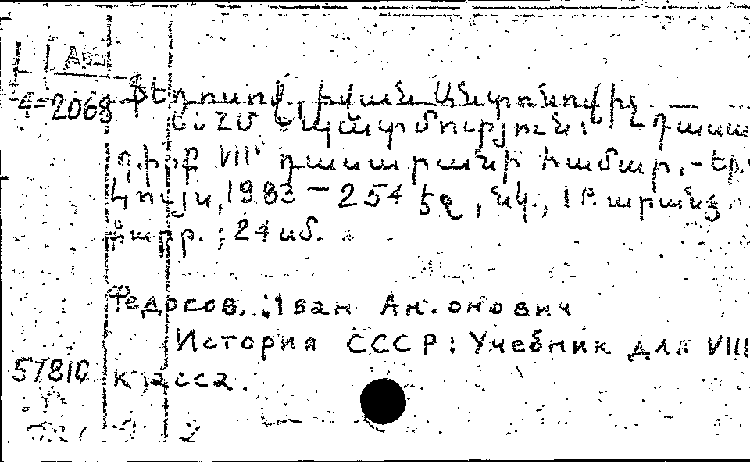 Ան
4-2068 Ֆեդոսով, Իվան Անտոնովիչ —
ՍՍՀՄ պատմություն: Դասա
գիրք VIII դասարանի համար. - Եր.
Լույս, 1983 — 254 էջ, նկ., 1 թ. արանց
քարտ. ; 24 սմ.
Федосов, Иван Антонович
История СССР: Учебник для VIII
57810 класса.